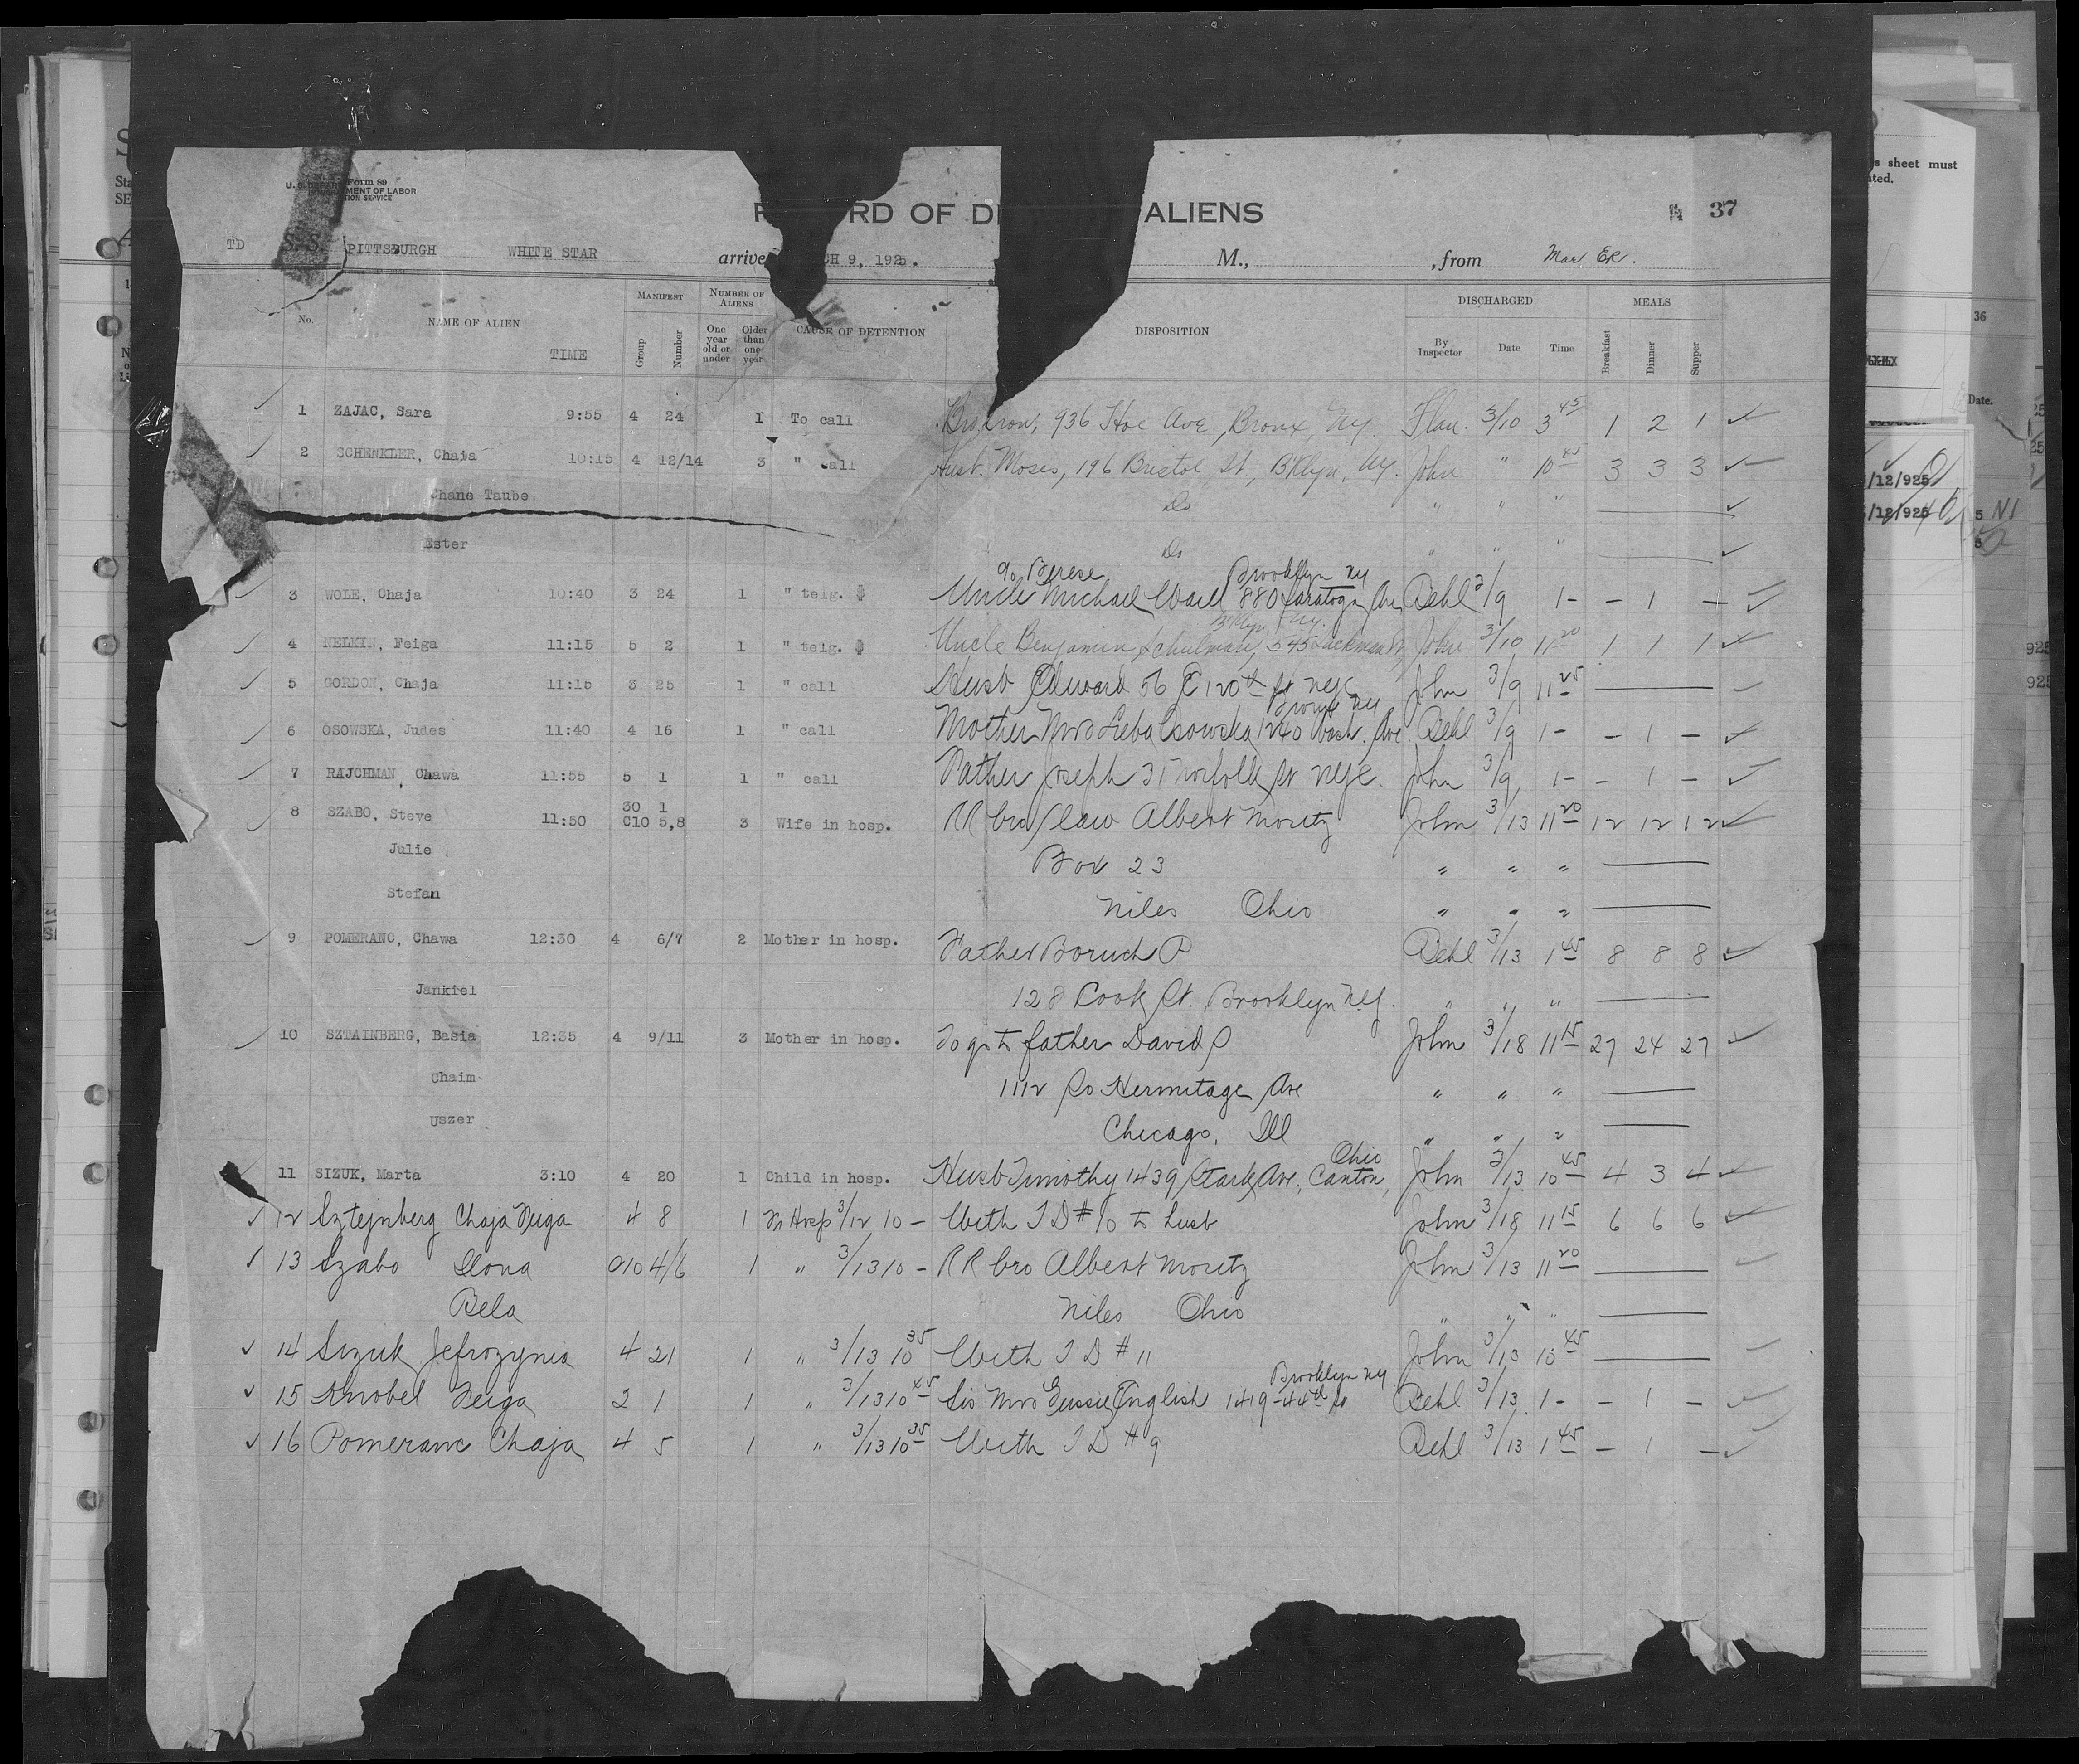 Form 89
U. S. DEPARTMENT OF LABOR
TION SERVICE
RD OF DE ALIENS
37
TD S. S. PITTSBURGH WHITE STAR arrive CH 9, 1925. M., , from Mar. ER.
No. NAME OF ALIEN TIME MANIFEST Group Number NUMBER OF ALIENS One year old or under Older than one year CAUSE OF DETENTION DISPOSITION DISCHARGED By Inspector Date Time MEALS Breakfast Dinner Supper
1 ZAJAC, Sara 9:55 4 24 1 To call Bro Aron, 936 Hoe Ave, Bronx, Ny. Flau. 3/10 3 45 1 2 1
2 SCHENKLER, Chaja 10:15 4 12/14 3 " call Husb. Moses, 196 Bristol St, Bklyn, Ny. John " 10 45 3 3 3
Chane Taube Do " " "
Ester Do " " "
c/o Berese Brooklyn ny
3 WOLE, Chaja 10:40 3 24 1 " telg. $ Uncle Michael Wall 880 Saratoga Ave Behl 3/9 1- - 1 -
Bklyn Ny.
4 NELKIN, Feiga 11:15 5 2 1 " telg. $ Uncle Benjamin Schulman, 545 Hackman St John 3/10 11 20 1 1 1
5 GORDON, Chaja 11:15 3 25 1 " call Husb Edward 56 E 120th St nyc John 3/9 11 25
Bronx Ny
6 OSOWSKA, Judes 11:40 4 16 1 " call Mother Mrs Lieba Osowska 1240 Wash. Ave Behl 3/9 1- - 1 -
7 RAJCHMAN, Chawa 11:55 5 1 1 " call Father Joseph 31 Norfolk St nyc. John 3/9 1- - 1 -
8 SZABO, Steve 11:50 30 1 C10 5,8 3 Wife in hosp. RR bro/law Albert Moritz John 3/13 11 20 12 12 12
Julie Box 23 " " "
Stefan Niles Ohio " " "
9 POMERANC, Chawa 12:30 4 6/7 2 Mother in hosp. Father Boruch P Behl 3/13 1 45 8 8 8
Jankiel 128 Cook St. Brooklyn Ny. " " "
10 SZTAINBERG, Basia 12:35 4 9/11 3 Mother in hosp. To go to father David S John 3/18 11 15 27 24 27
Chaim 1112 So Hermitage Ave " " "
Uszer Chicago, Ill " " "
11 SIZUK, Marta 3:10 4 20 1 Child in hosp. Husb Timothy 1439 Stark Ave, Canton, Ohio John 3/13 10 45 4 3 4
12 Sztejnberg Chaja Neiga 4 8 1 In Hosp 3/12 10 - With T D # 10 to husb John 3/18 11 15 6 6 6
13 Szabo Ilona C10 4/6 1 " 3/13 10 - RR bro Albert Moritz John 3/13 11 20
Bela Niles Ohio " " "
14 Sizuk Jefrozynia 4 21 1 " 3/13 10 35 With T D # 11 John 3/13 10 45
15 Knobel Neiga 2 1 1 " 3/13 10 45 Sis Mrs Gussie English 1419-44th St Brooklyn Ny Behl 3/13 1- - 1 -
16 Pomeranc Chaja 4 5 1 " 3/13 10 35 With T D # 9 Behl 3/13 1 45 - 1 -
s sheet must
36
Date.
/12/925
/12/925